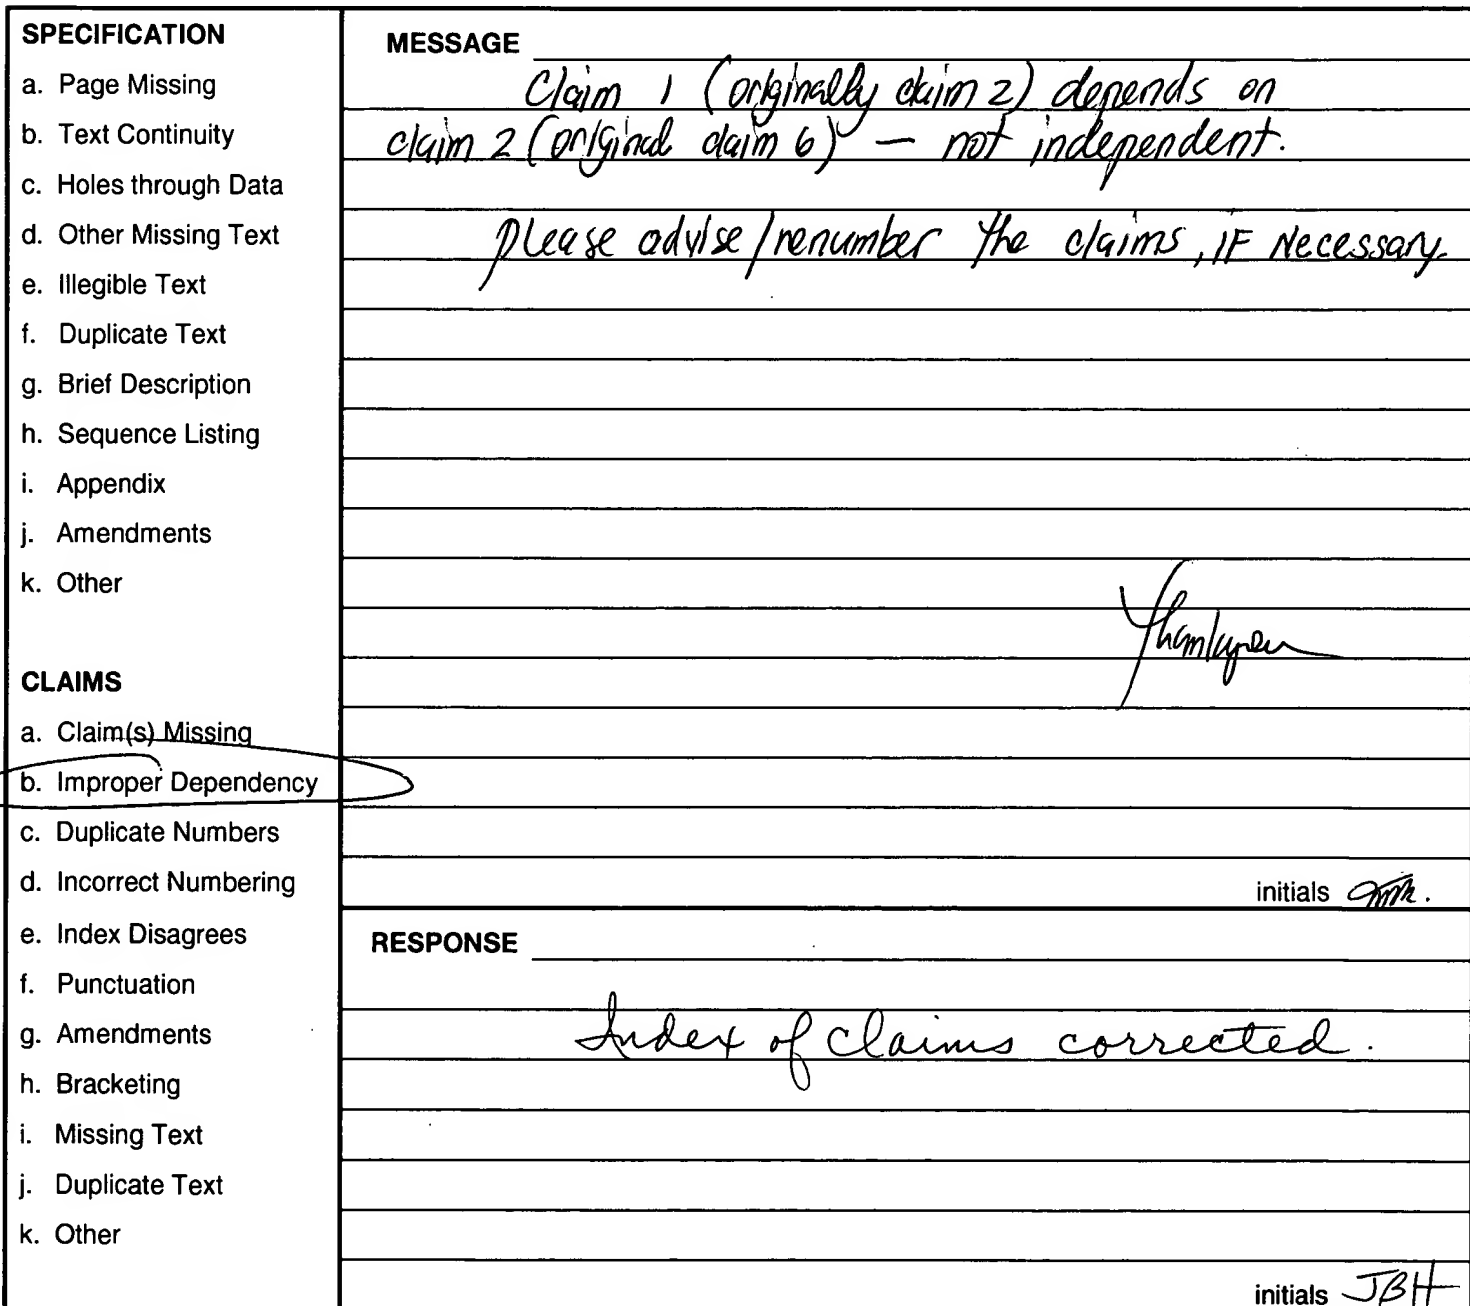 SPECIFICATION
a. Page Missing
b. Text Continuity
c. Holes through Data
d. Other Missing Text
e. Illegible Text
f. Duplicate Text
g. Brief Description
h. Sequence Listing
i. Appendix
j. Amendments
k. Other
CLAIMS
a. Claim(s) Missing
b. Improper Dependency
c. Duplicate Numbers
d. Incorrect Numbering
e. Index Disagrees
f. Punctuation
g. Amendments
h. Bracketing
i. Missing Text
j. Duplicate Text
k. Other
MESSAGE
Claim 1 (originally claim 2) depends on
claim 2 (original claim 6) — not independent.
please advise/renumber the claims, IF Necessary.
Thank you
initials
RESPONSE
Index of Claims corrected.
initials JBH